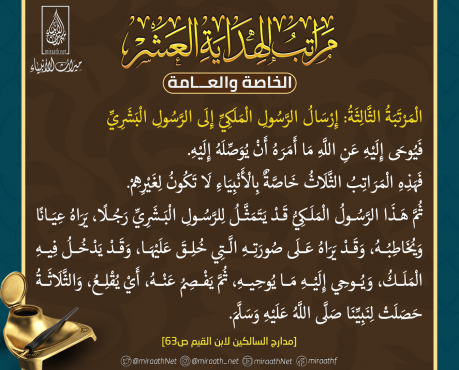 ميراث الأنبياء
miraath.net
ميراث الأنبياء
مراتب الهداية العشر
الخاصة والعـــامة
الْمَرْتَبَةُ الثَّالِثَةُ: إِرْسَالُ الرَّسُولِ الْمَلَكِيِّ إِلَى الرَّسُولِ الْبَشَرِيِّ
فَيُوحَى إِلَيْهِ عَنِ اللَّهِ مَا أَمَرَهُ أَنْ يُوَصِّلَهُ إِلَيْهِ.
فَهَذِهِ الْمَرَاتِبُ الثَّلَاثُ خَاصَّةٌ بِالْأَنْبِيَاءِ لَا تَكُونُ لِغَيْرِهِمْ.
ثُمَّ هَذَا الرَّسُولُ الْمَلَكِيُّ قَدْ يَتَمَثَّلُ لِلرَّسُولِ الْبَشَرِيِّ رَجُلًا، يَرَاهُ عِيَانًا
وَيُخَاطِبُهُ، وَقَدْ يَرَاهُ عَلَى صُورَتِهِ الَّتِي خُلِقَ عَلَيْهَا، وَقَدْ يَدْخُلُ فِيهِ
الْمَلَكُ، وَيُوحِي إِلَيْهِ مَا يُوحِيهِ، ثُمَّ يَفْصِمُ عَنْهُ، أَيْ يُقْلِعُ، وَالثَّلَاثَةُ
حَصَلَتْ لِنَبِيِّنَا صَلَّى اللَّهُ عَلَيْهِ وَسَلَّمَ.
[مدارج السالكين لابن القيم ص63]
@miraathNet @miraath_net miraathNet miraathf